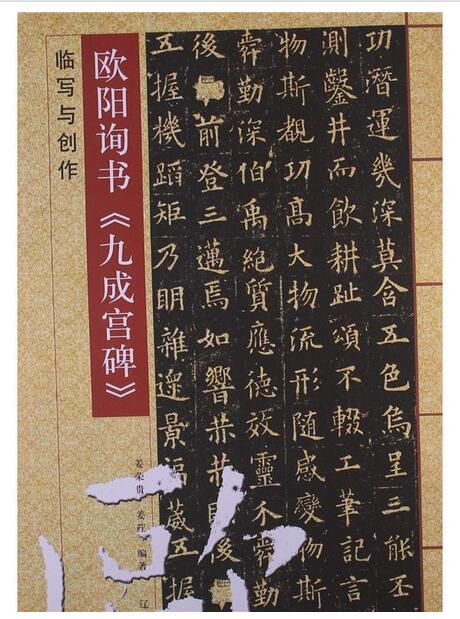 临写与创作
欧阳询书《九成宫碑》
功潛運幾深莫含五色烏呈三能丕
測鑿井而飲耕趾頌不輟工筆記言
物斯覩功高大物流形隨感變物斯
舜勤深伯禹絕質應德效靈不舜勤
後前登三邁焉如響恭恭後
五握機蹈矩乃眀雜遝景福葳五握
姜荣贵 姜 编著
辽